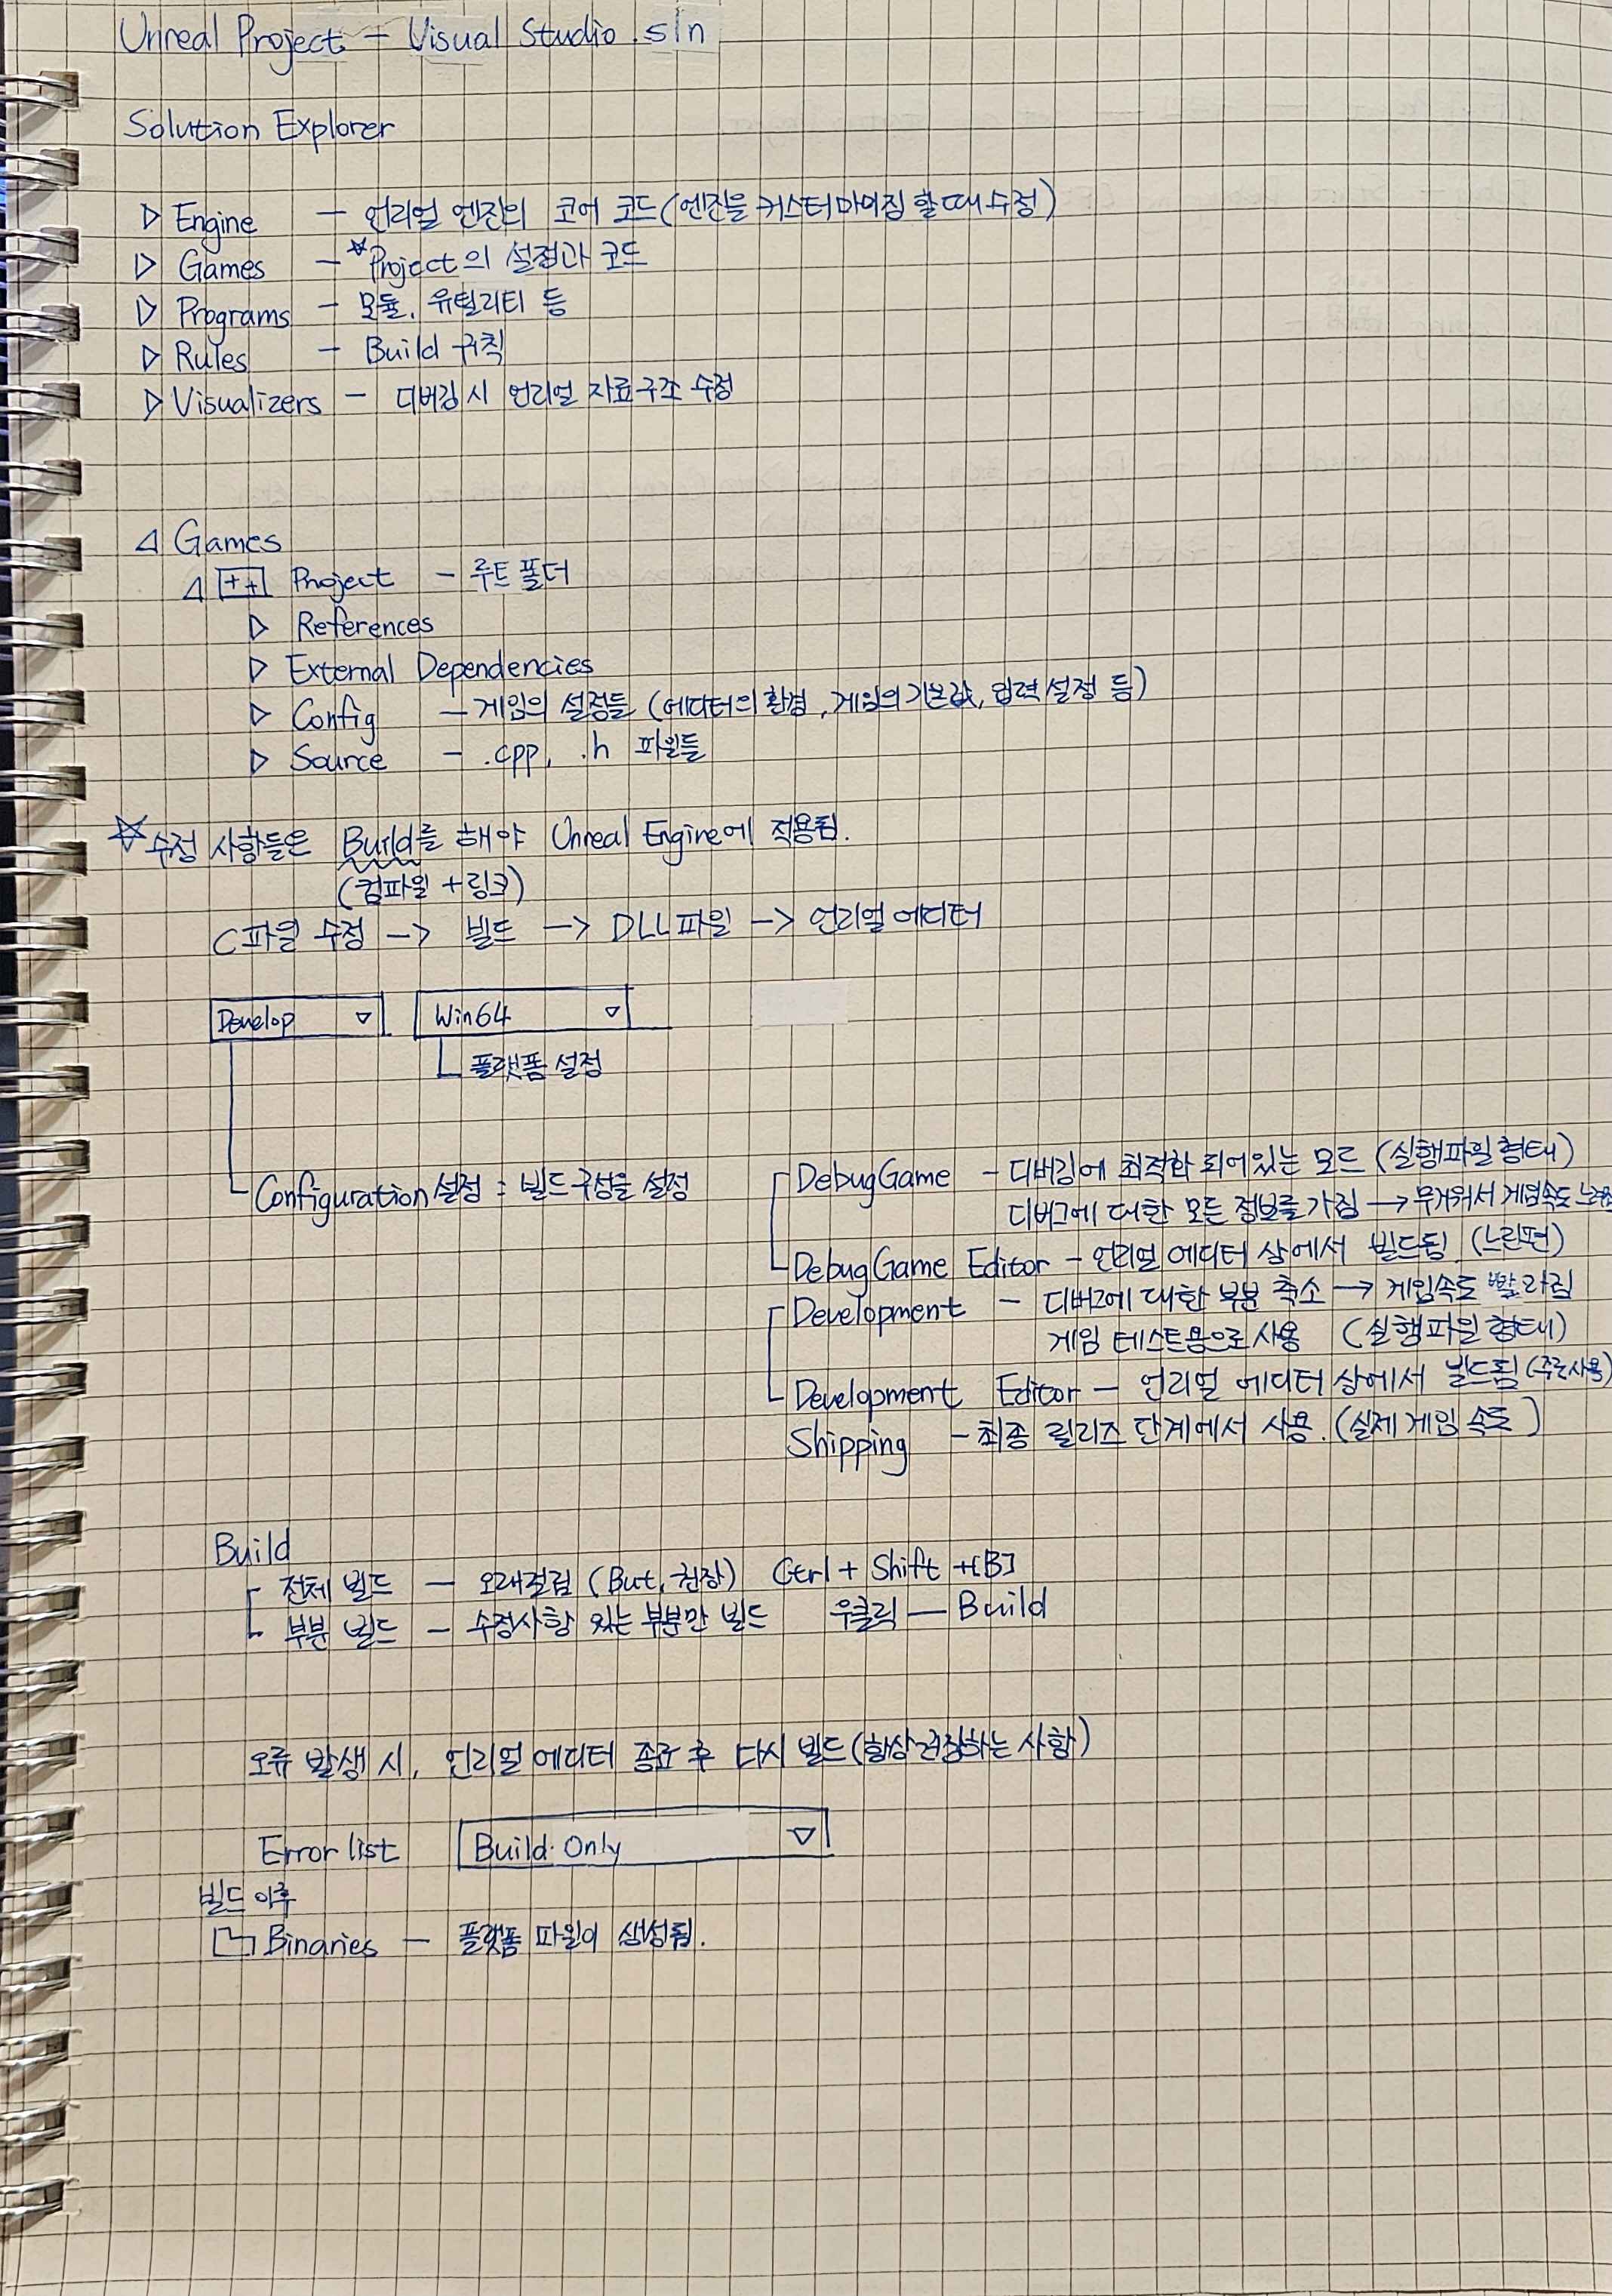 Unreal Project - Visual Studio .sln
Solution Explorer
▷ Engine - 언리얼 엔진의 코어 코드 (엔진을 커스터마이징 할 때 수정)
▷ Games - ☆Project의 설정과 코드
▷ Programs - 모듈, 유틸리티 등
▷ Rules - Build 규칙
▷ Visualizers - 디버깅 시 언리얼 자료구조 수정
◿ Games
◿ [++] Project - 루트 폴더
▷ References
▷ External Dependencies
▷ Config - 게임의 설정들 (에디터의 환경, 게임의 기본값, 입력 설정 등)
▷ Source - .cpp, .h 파일들
☆수정 사항들은 Build를 해야 Unreal Engine에 적용됨.
(컴파일 + 링크)
C파일 수정 -> 빌드 -> DLL 파일 -> 언리얼 에디터
Develop ▽ Win64 ▽
플랫폼 설정
Configuration 설정 : 빌드 구성을 설정
DebugGame - 디버깅에 최적화 되어있는 모드 (실행파일 형태)
디버그에 대한 모든 정보를 가짐 -> 무거워서 게임속도 느려짐
DebugGame Editor - 언리얼 에디터 상에서 빌드됨 (느린편)
Development - 디버그에 대한 부분 축소 -> 게임속도 빨라짐
게임 테스트용으로 사용 (실행파일 형태)
Development Editor - 언리얼 에디터 상에서 빌드됨 (주로사용)
Shipping - 최종 릴리즈 단계에서 사용. (실제 게임 속도)
Build
전체 빌드 - 오래걸림 (But, 권장) Ctrl + Shift + [B]
부분 빌드 - 수정사항 있는 부분만 빌드 우클릭 - Build
오류 발생 시, 언리얼 에디터 종료 후 다시 빌드 (항상 권장하는 사항)
Error list Build Only ▽
빌드 이후
Binaries - 플랫폼 파일이 생성됨.